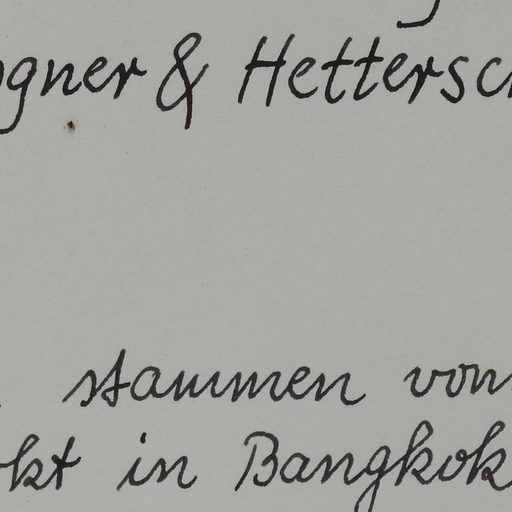 ogner & Hettersc
stammen von
rkt in Bangkok